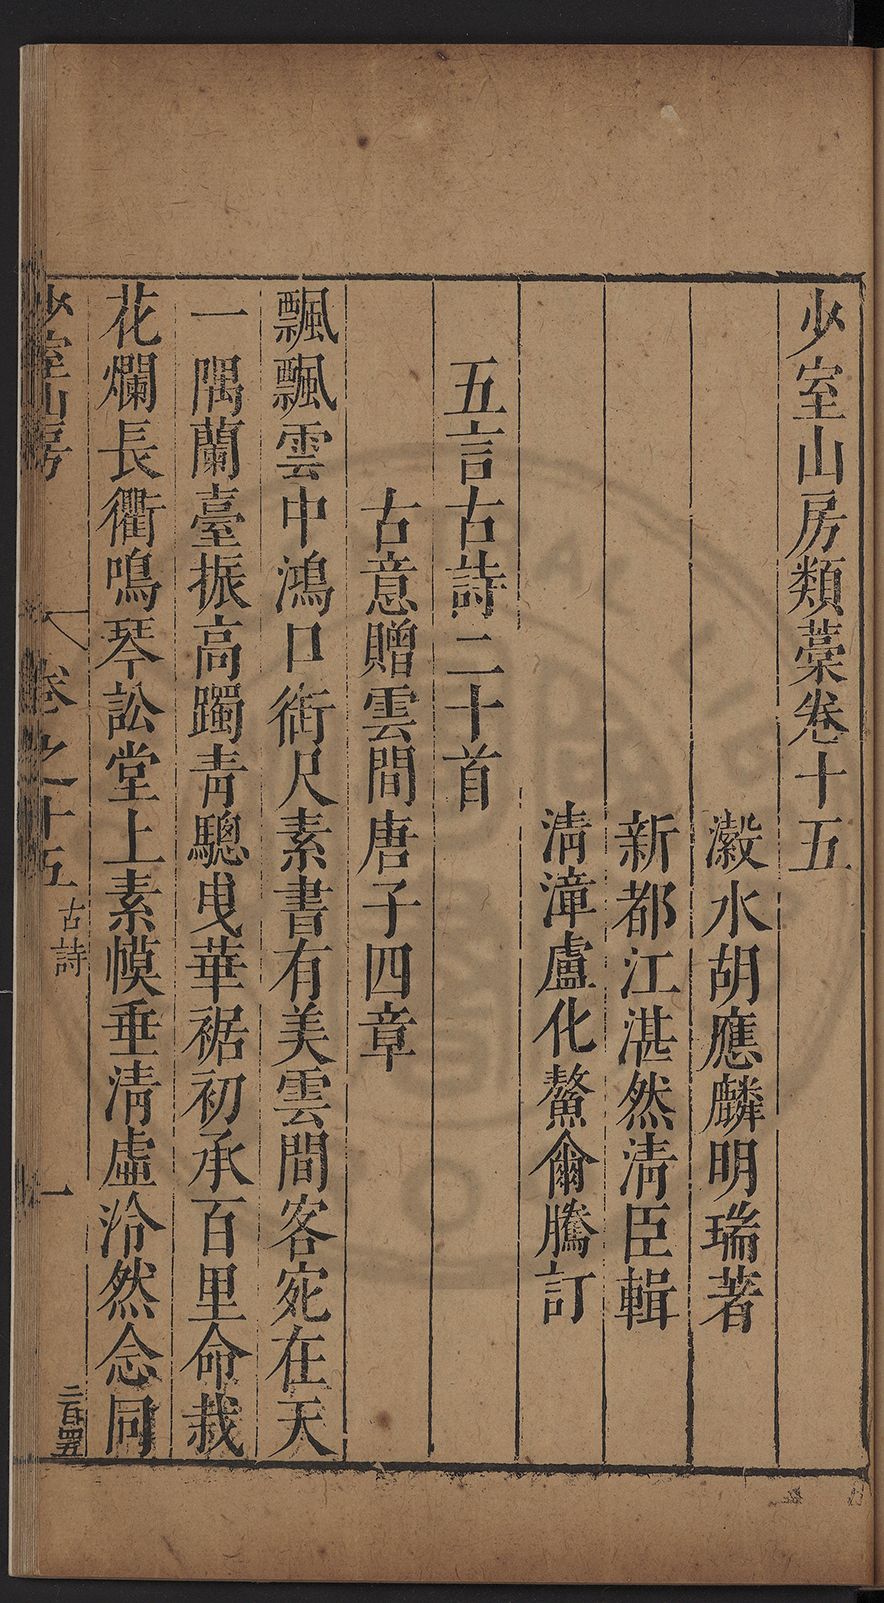 少室山房類藁卷十五
瀫水胡應麟明瑞著
新都江湛然清臣輯
清漳盧化鰲爾騰訂
五言古詩二十首
古意贈雲間唐子四章
飄飄雲中鴻口銜尺素書有美雲間客宛在天
一隅蘭臺振高躅青驄曳華裾初承百里命栽
花爛長衢鳴琴訟堂上素幙垂清虛泠然念同
少室山房 卷之十五 古詩 一 二百四五